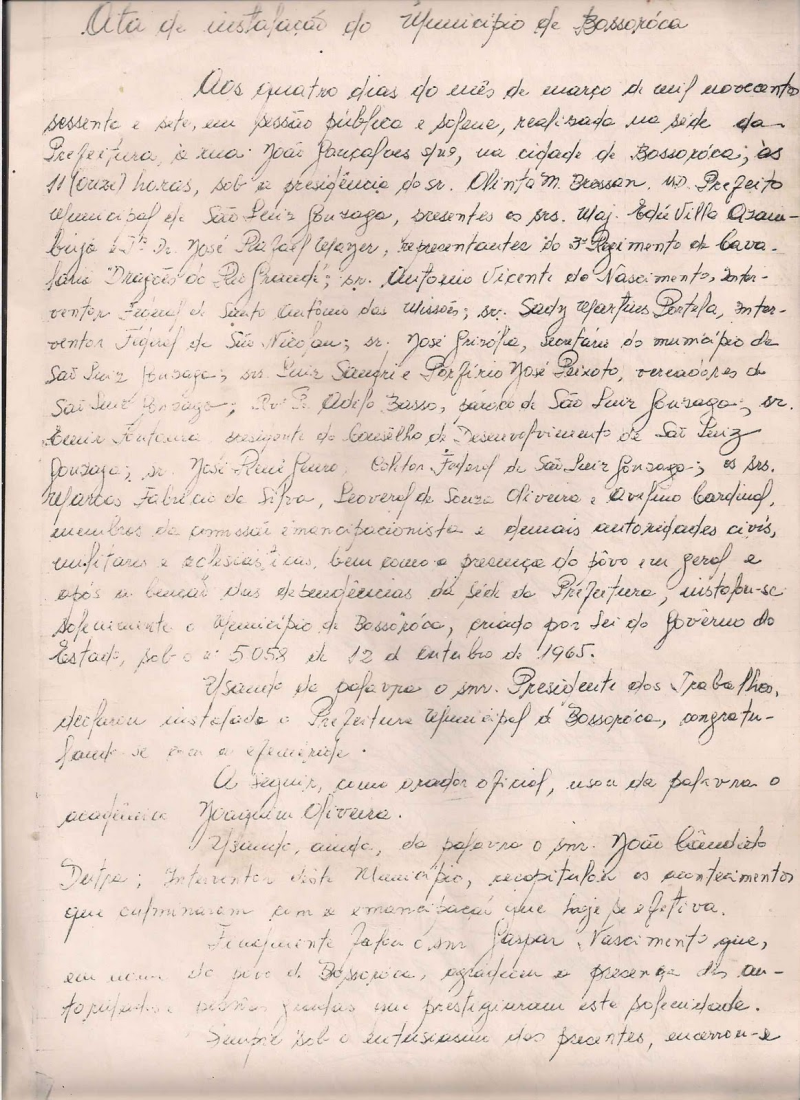 Ata de instalação do Município de Bossoróca
Aos quatro dias do mês de março de mil novecento
sessenta e sete, em sessão pública e solene, realizada na séde da
Prefeitura, à rua: João Gonçalves s/nº, na cidade de Bossoróca; às
11 (onze) horas, sob a presidência do sr. Olinto M. Bressan. M.D. Prefeito
Municipal de São Luiz Gonzaga, presentes os srs. Maj. Edú Villa Azam-
buja e Dr. José Rafael representantes do 3º Regimento de Cava-
laria "Dragões do Rio Grande"; sr. Antonio Vicente do Nascimento, Inter-
ventor Federal de Santo Antônio das Missões; sr. Sady Martins Portela, Inter-
ventor Federal de São Nicolau; sr. José Grisólia, Secretário do município de
São Luiz Gonzaga; srs. Luiz Sandri e Porfírio José Peixoto, vereadores de
São Luiz Gonzaga; Rvº Pe. Adolfo Basso, pároco de São Luiz Gonzaga; sr.
Fontoura, presidente do Conselho de Desenvolvimento de São Luiz
Gonzaga; sr. José René Genro, Coletor Federal de São Luiz Gonzaga; os srs.
Marcos Fabricio da Silva, Leoveral de Souza Oliveira e Avelino Cardinal,
membros da comissão emancipacionista e demais autoridades civis,
militares e eclesiásticas, bem como a presença do pôvo em geral e
após a benção das dependências da séde da Prefeitura, instalou-se
solenemente o Município de Bossoróca, criado por Lei do Govêrno do
Estado, sob o nº 5.058 de 12 de outubro de 1965.
Usando da palavra o snr. Presidente dos Trabalhos,
declarou instalada a Prefeitura Municipal de Bossoróca, congratu-
lando-se com a efeméride.
A seguir, como orador oficial, usou da palavra o
acadêmico Joaquim Oliveira.
Usando, ainda, da palavra o snr. João Cândido
Dutra; Interventor dêste Município, recapitulou os acontecimentos
que culminaram com a emancipação que hoje se efetiva.
Finalmente falou o snr Gaspar Nascimento que,
em nome do povo de Bossoróca, agradeceu a presença das au-
toridades e pessôas gradas que prestigiaram esta solenidade.
Sempre sob o entusiasmo dos presentes, encerrou-se